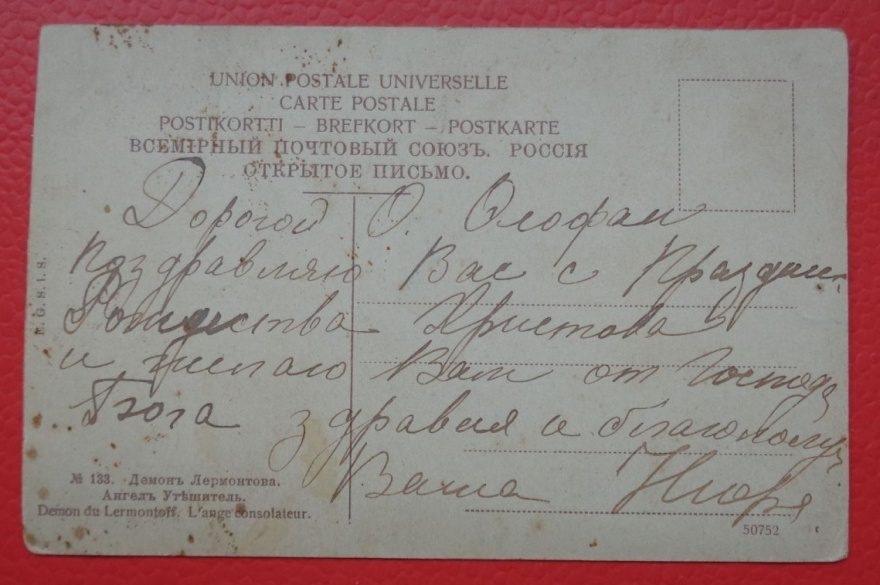 UNION POSTALE UNIVERSELLE
CARTE POSTALE
POSTIKORTTI – BREFKORT – POSTKARTE
ВСЕМІРНЫЙ ПОЧТОВЫЙ СОЮЗЪ. РОССІЯ
ОТКРЫТОЕ ПИСЬМО.
Дорогой О. Олофан
Поздравляю Вас с Праздн.
Рождества Христова
и желаю Вам от Господа
Бога здравия и благополуч.
Ваша Нюра
E. G. S. I. S.
№ 133. Демонъ Лермонтова.
Ангелъ Утѣшитель.
Demon du Lermontoff. L'ange consolateur.
50752